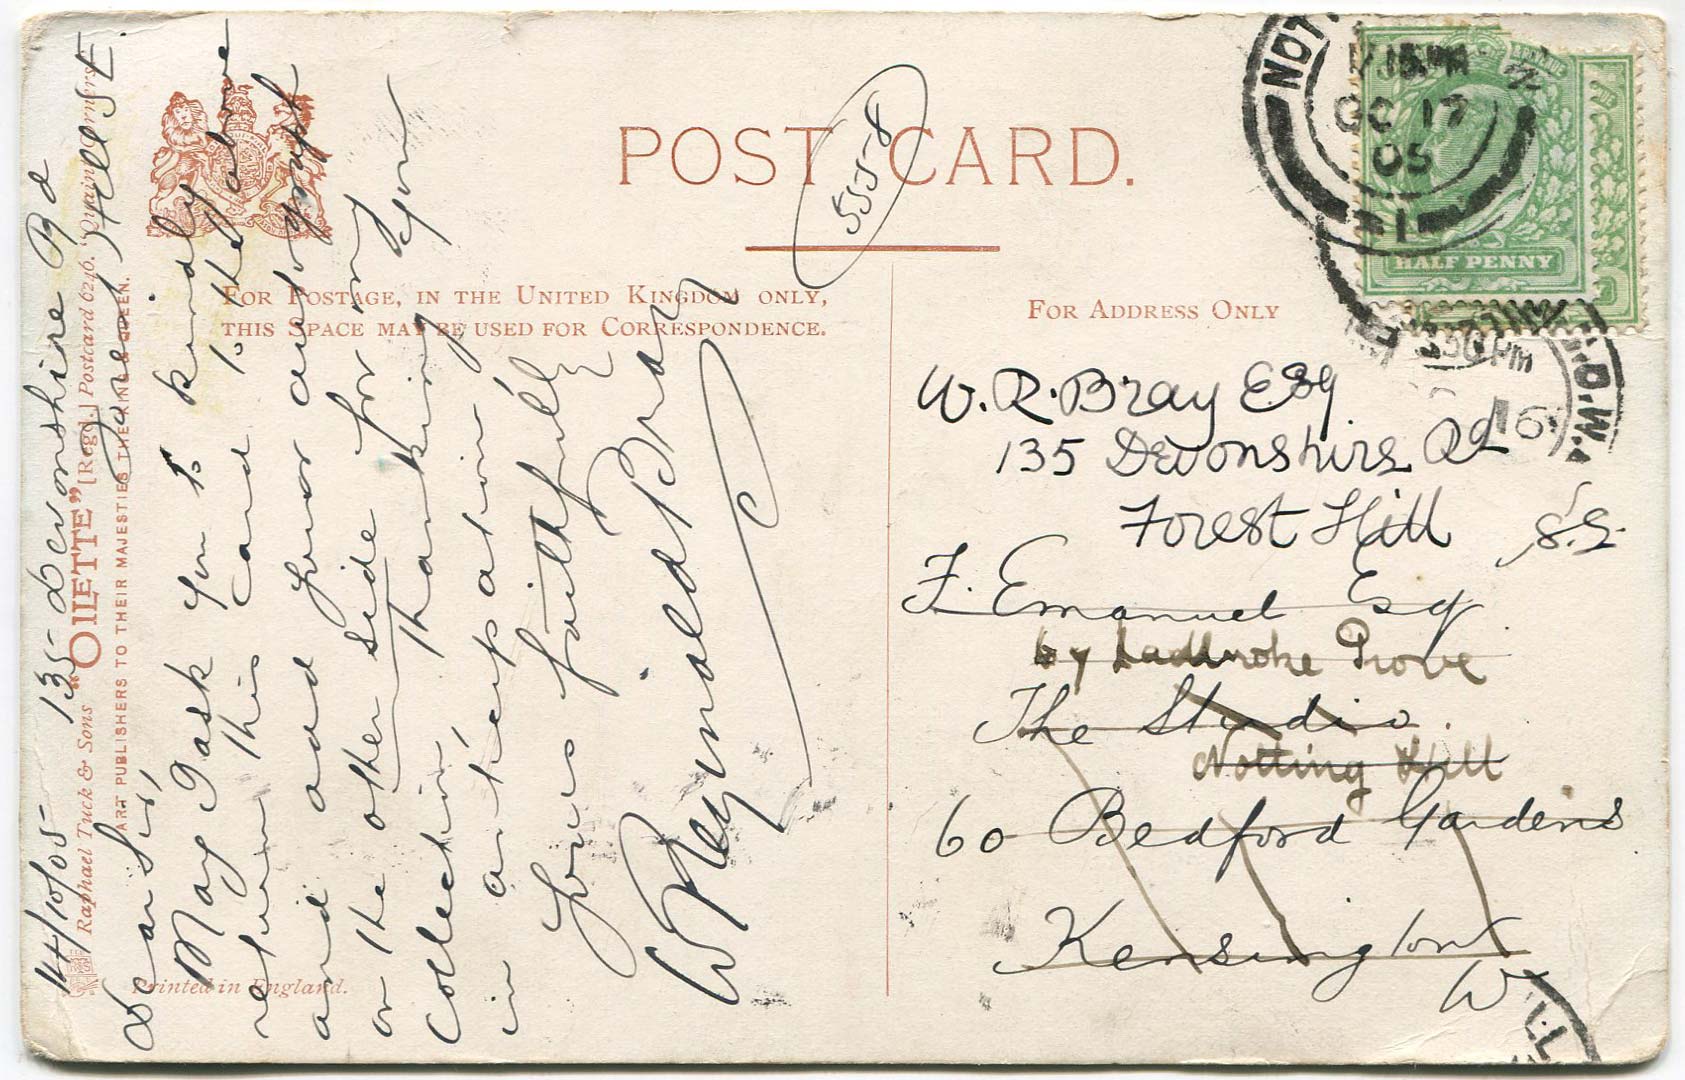 POST CARD.
555-8
FOR POSTAGE, IN THE UNITED KINGDOM ONLY,
THIS SPACE MAY BE USED FOR CORRESPONDENCE.
FOR ADDRESS ONLY
14/10/05 135 Devonshire Rd
Forest Hill S E
Dear Sir,
May I ask you to kindly
return this card to the above
and add your autograph
on the other side for my
collection, thanking you
in anticipation
Yours faithfully
W Reynold Bray
Raphael Tuck & Sons "OILETTE" [Regd.] Postcard 6246. "Quaint Corners"
ART PUBLISHERS TO THEIR MAJESTIES THE KING & QUEEN.
Printed in England.
W. R. Bray Esq
135 Devonshire Rd
Forest Hill S.E.
F. Emanuel Esq
67 Ladbroke Grove
The Studio
Notting Hill
60 Bedford Gardens
Kensington
W
NOT
7 15 PM
OC 17
05
1
HALF PENNY
30 PM
16
S.O.W.
ILL